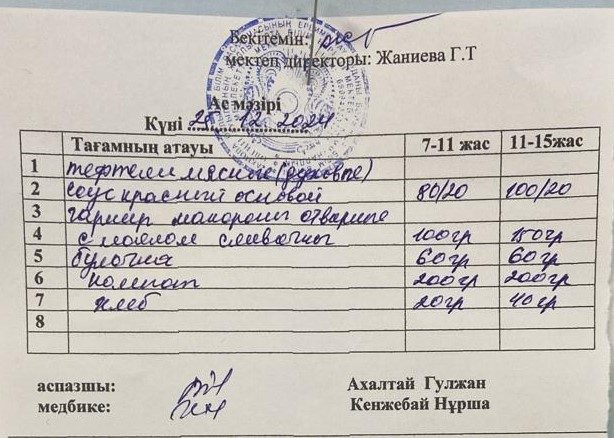 Бекітемін:
мектеп директоры: Жаниева Г.Т
Ас мәзірі
Күні 25. 12. 2024
Тағамның атауы 7-11 жас 11-15жас
1 тефтели мясные (духовые)
2 соус красный основой 80/20 100/20
3 гарнир макароны отварные
4 с маслом сливочны 100гр 150гр
5 булочка 60гр 60гр
6 компот 200гр 200гр
7 хлеб 20гр 40гр
8
аспазшы: Ахалтай Гулжан
медбике: Кенжебай Нұрша